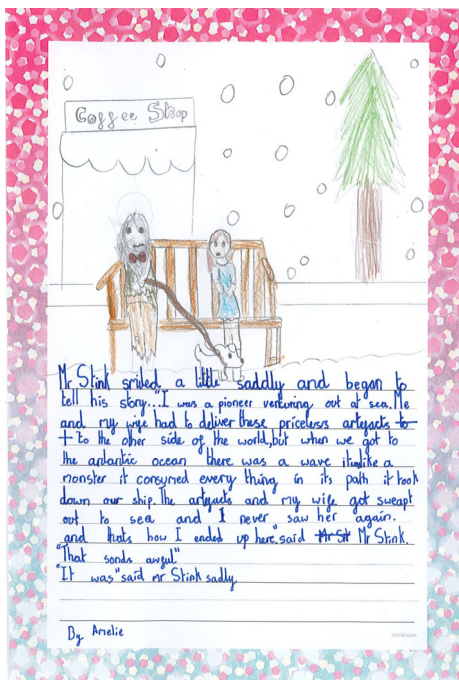 Coffee Shop
Mr Stink smiled a little saddly and began to
tell his story..."I was a pioneer venturing out at sea. Me
and my wife had to deliver these priceless artefacts to
t to the other side of the world, but when we got to
the antantic ocean there was a wave it like a
monster it consumed every thing in its path it took
down our ship. The artefacts and my wife got sweapt
out to sea and I never saw her again.
and thats how I ended up here." said Mr Sti Mr Stink.
"That sonds awful"
"It was" said mr Stink sadly.
By Amelie